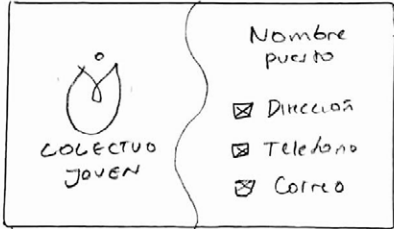 COLECTVO
JOVEN
Nombre
puesto
Dirección
Telefono
Correo